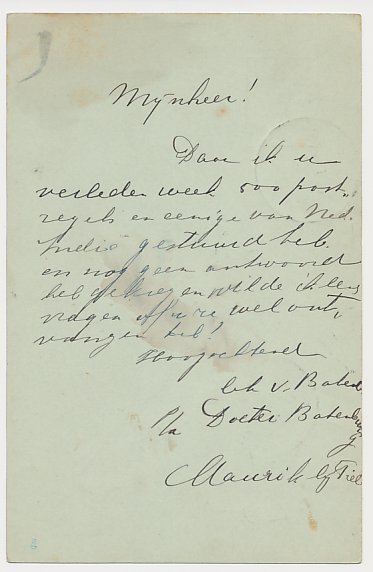 Mynheer!
Daar ik u
verleden week 500 post„
zegels en eenige van Ned.
Indie gestuurd heb
en nog geen antwoord
heb gekregen wilde ik eens
vragen of u ze wel ont„
vangen heb!
Hoogachtend
v. Batenb
P/a Docter Batenburg
Maurik by Tiel